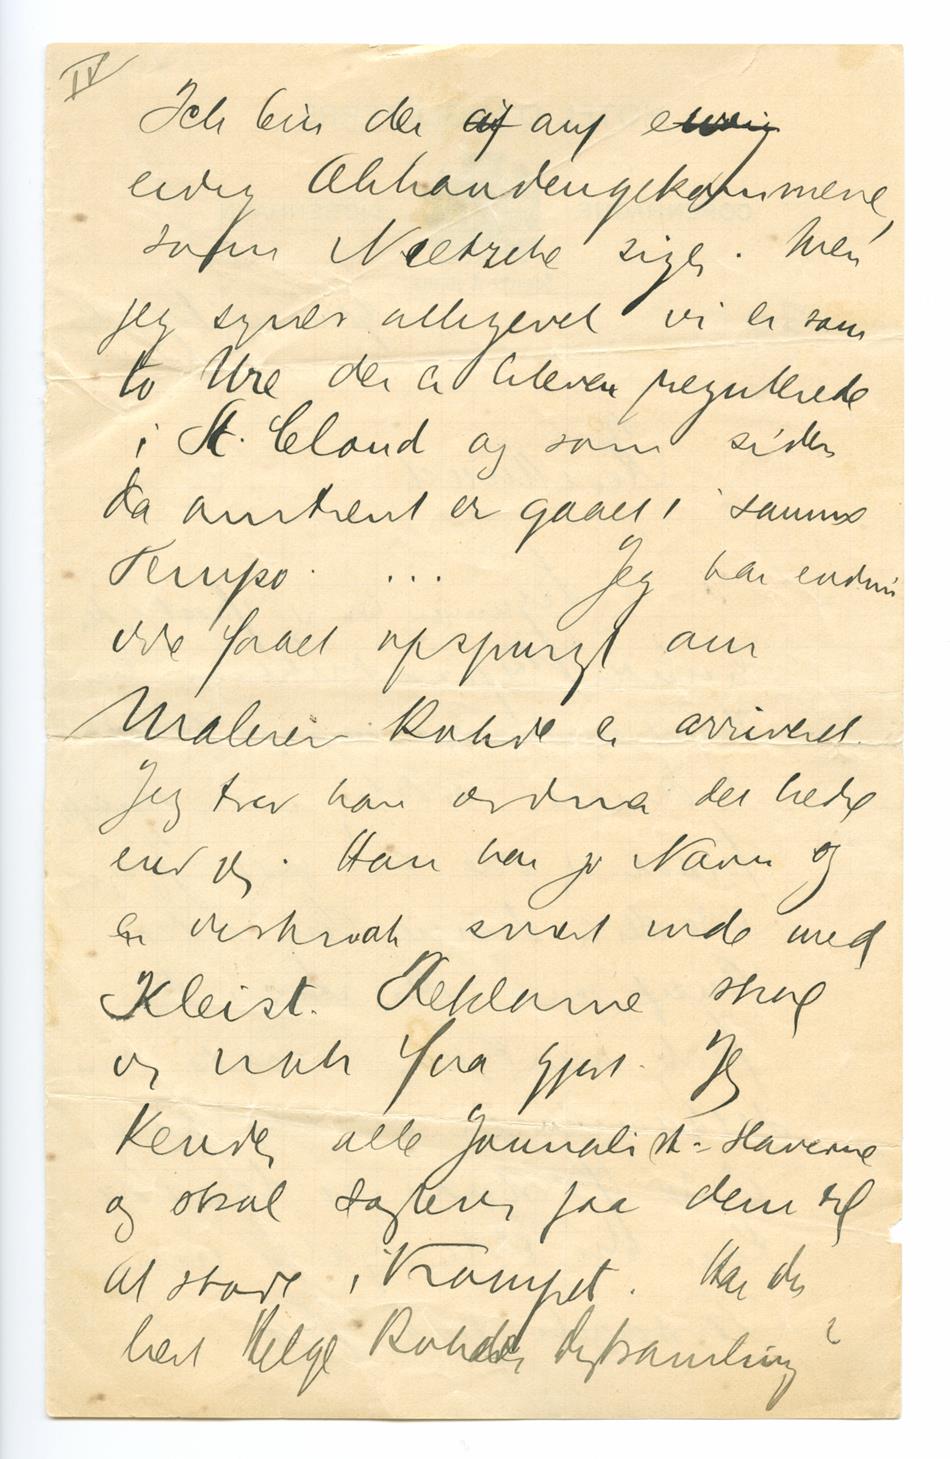 IV
Ich bin der auf auf ewig
ewig Abhandengekommene,
som Nietzsche siger. Men
jeg synes alligevel vi er som
to Ure der er bleven regulerede
i St. Cloud og som siden
da omtrent er gaaet i samme
Tempo. ... Jeg har endnu
ikke faaet opspurgt om
Maleren Rohde er arriveret.
Jeg tror han ordna det bedre
end jeg. Han har jo Navn og
er virkeligt svært inde med
Kleist. Reklame skal
vi nok faa gjort. Jeg
kender alle Journalist-Slaverne
og skal sagtens faa dem til
at støde i Trompet. Har du
læst Helge Rohdes Digtsamling?